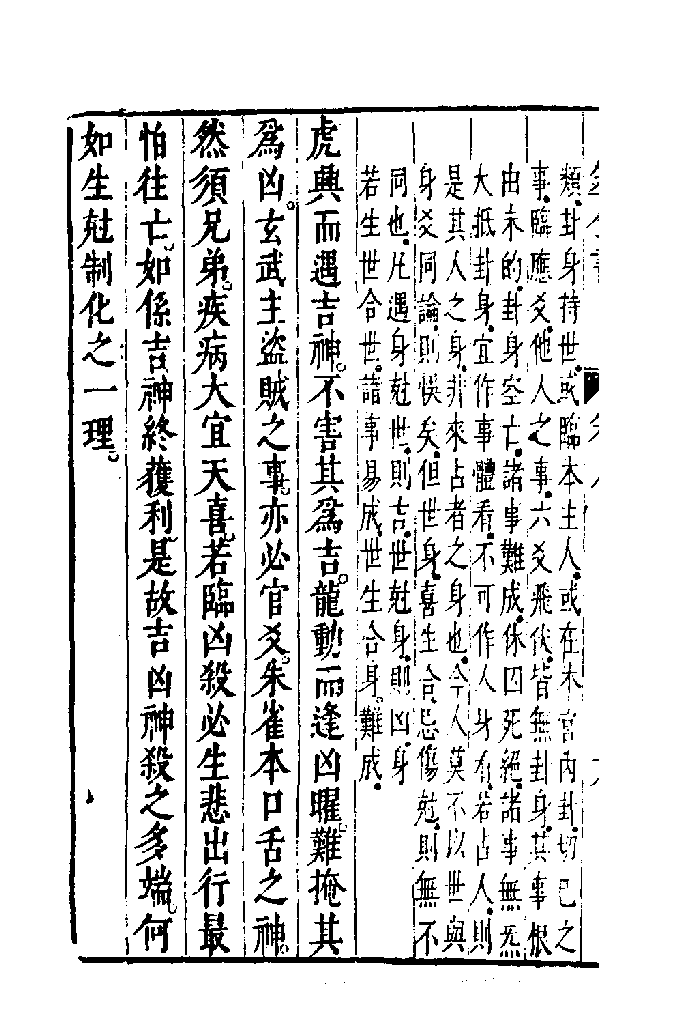 類.卦身持世.或臨本主人.或在本宮內卦.切己之
事.臨應爻.他人之事.六爻飛伏.皆無卦身.其事根
由未的.卦身空亡.諸事難成.休囚死絕.諸事無炁
大抵卦身.宜作事體看.不可作人身看.若占人.則
是其人之身.非來占者之身也.今人莫不以世與
身爻同論.則悞矣.但世身.喜生合.忌傷尅.則無不
同也.凡遇身尅世.則吉.世尅身.則凶.身
若生世合世.諸事易成.世生合身.難成.
虎興而遇吉神。不害其爲吉。龍動而逢凶曜。難掩其
爲凶。玄武主盜賊之事。亦必官爻。朱雀本口舌之神。
然須兄弟。疾病大宜天喜。若臨凶殺必生悲出行最
怕往亡。如係吉神終獲利。是故吉凶神殺之多端。何
如生尅制化之一理。